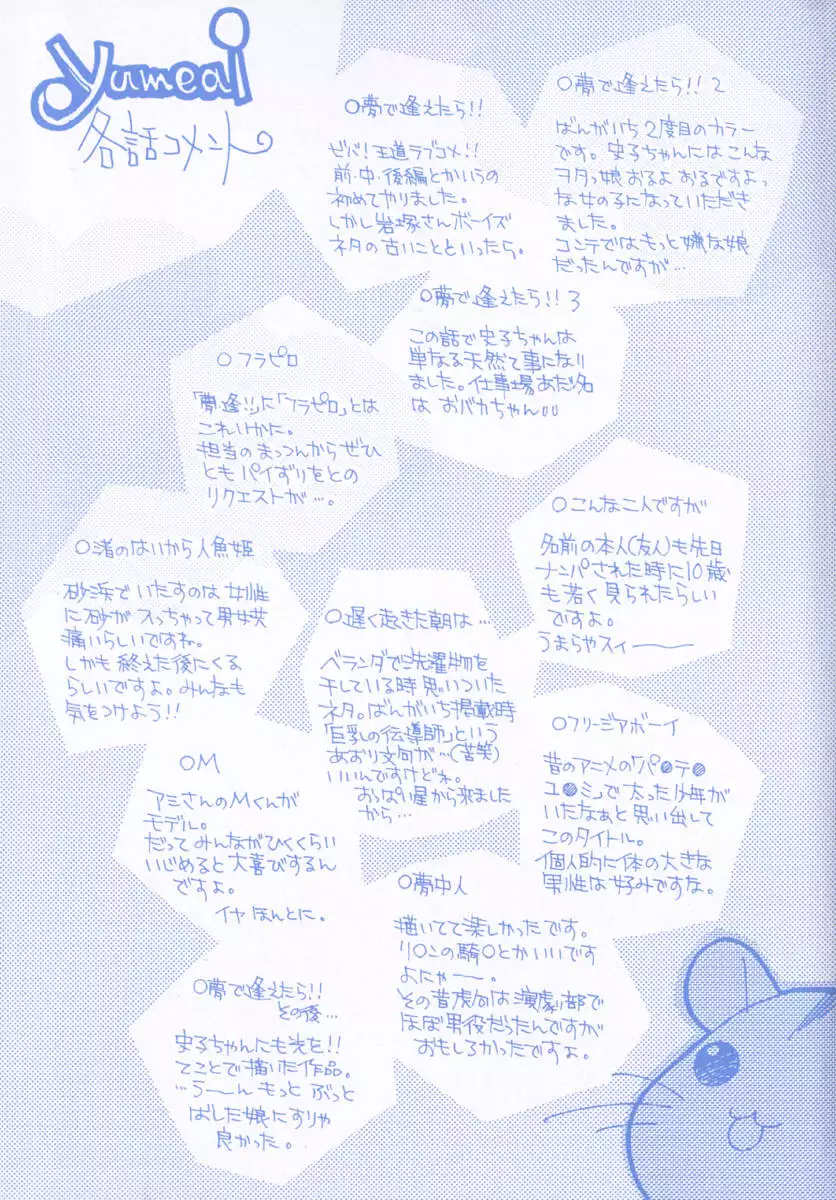 yumeai
各話コメント
○夢で逢えたら!!
ビバ!王道ラブコメ!!
前・中・後編とかいうの
初めてやりました。
しかし岩塚さんボーイズ
ネタの古いことといったら。
○夢で逢えたら!! 2
ばんがいち2度目のカラー
です。史子ちゃんにはこんな
ヲタっ娘おるよおるですよっ
な女の子になっていただき
ました。
コンテではもっと嫌な娘
だったんですが…
○夢で逢えたら!! 3
この話で史子ちゃんは
単なる天然て事になり
ました。仕事場あだ名
はおバカちゃん
○フラピロ
「夢・逢!!」に「フラピロ」とは
これいかに。
担当のまっつんからぜひ
ともパイずりをとの
リクエストが…。
○こんな二人ですが
名前の本人(友人)も先日
ナンパされた時に10歳
も若く見られたらしい
ですよ。
うまらやスィー
○渚のはいから人魚姫
砂浜でいたすのは女性
に砂が入っちゃって男女共
痛いらしいですね。
しかも終えた後にくる
らしいですよ。みんなも
気をつけよう!!
○遅く起きた朝は…
ベランダで洗濯物を
干している時思いついた
ネタ。ばんがいち掲載時
「巨乳の伝導師」という
あおり文句が…(苦笑)
いいんですけどね。
おっぱい屋から来ました
から…
○フリージアボーイ
昔のアニメの「パ●テ●
ユ●ミ」で太った少年が
いたなぁと思い出して
このタイトル。
個人的に体の大きな
男性は好みですな。
○M
アミさんのMくんが
モデル。
だってみんながひくくらい
いじめると大喜びするん
ですよ。
イヤほんとに。
○夢中人
描いてて楽しかったです。
リ○ンの騎○とかいいです
よにゃー。
その昔虎向は演劇部で
ほぼ男役だったんですが
おもしろかったですよ。
○夢で逢えたら!!
その後…
史子ちゃんにも光を!!
てことで描いた作品。
…うーんもっとぶっと
ばした娘にすりゃ
良かった。